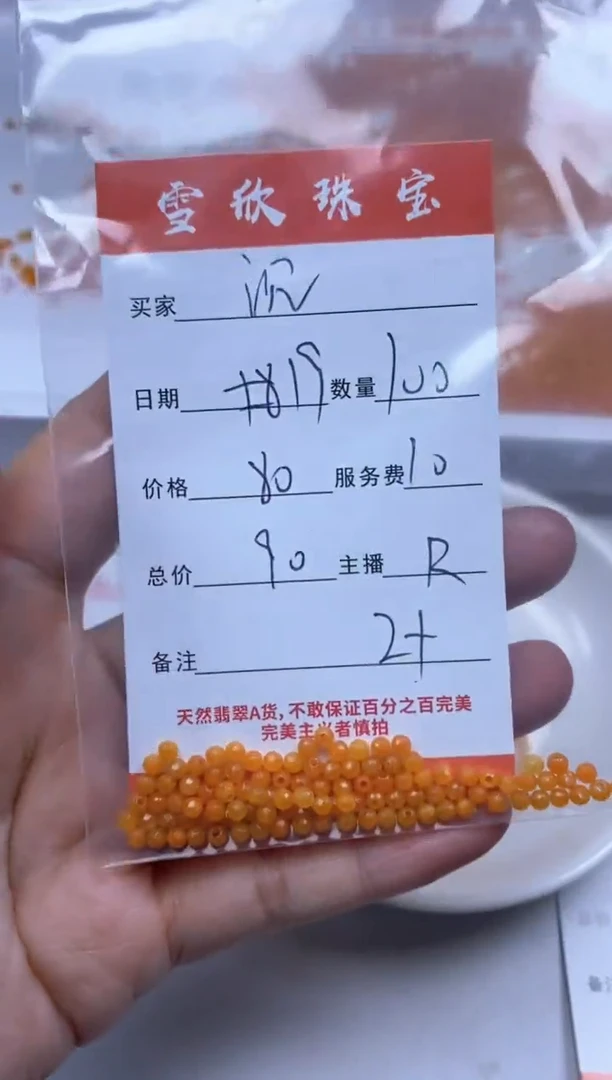 雪欣珠宝
买家 沉
日期 19 数量 100
价格 80 服务费 10
总价 90 主播 R
备注 2+
天然翡翠A货,不敢保证百分之百完美
完美主义者慎拍
备注